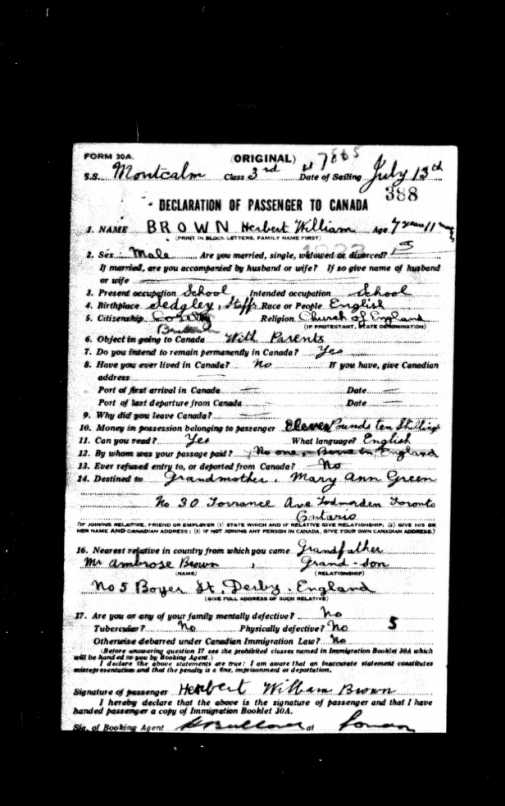 FORM 30A. (ORIGINAL) 7865
S.S. Montcalm Class 3rd Date of Sailing July 13th
388
DECLARATION OF PASSENGER TO CANADA
1. NAME BROWN Herbert William Age 7 years 11
(PRINT IN BLOCK LETTERS, FAMILY NAME FIRST)
2. Sex: Male Are you married, single, widowed or divorced? S
If married, are you accompanied by husband or wife? If so give name of husband
or wife
3. Present occupation School Intended occupation School
4. Birthplace Sedgley, Staffs Race or People English
5. Citizenship British Religion Church of England
(IF PROTESTANT, STATE DENOMINATION)
6. Object in going to Canada With Parents
7. Do you intend to remain permanently in Canada? Yes
8. Have you ever lived in Canada? No If you have, give Canadian
address
Port of first arrival in Canada Date
Port of last departure from Canada Date
9. Why did you leave Canada?
10. Money in possession belonging to passenger Eleven Pounds ten Shillings
11. Can you read? Yes What language? English
12. By whom was your passage paid? No one England
13. Ever refused entry to, or deported from Canada? No
14. Destined to Grandmother. Mary Ann Green
No 30 Torrance Ave Todmorden Toronto
Ontario
(IF JOINING RELATIVE, FRIEND OR EMPLOYER (1) STATE WHICH AND IF RELATIVE GIVE RELATIONSHIP, (2) GIVE HIS OR
HER NAME AND CANADIAN ADDRESS; (3) IF NOT JOINING ANY PERSON IN CANADA, GIVE YOUR OWN CANADIAN ADDRESS.)
16. Nearest relative in country from which you came Grandfather
Mr Ambrose Brown, Grand-son
(NAME) (RELATIONSHIP)
No 5 Boyer St, Derby. England
(GIVE FULL ADDRESS OF SUCH RELATIVE)
17. Are you or any of your family mentally defective? No
Tubercular? No Physically defective? No 5
Otherwise debarred under Canadian Immigration Law? No
(Before answering question 17 see the prohibited classes named in Immigration Booklet 30A which
will be handed to you by Booking Agent.)
I declare the above statements are true: I am aware that an inaccurate statement constitutes
misrepresentation and that the penalty is a fine, imprisonment or deportation.
Signature of passenger Herbert William Brown
I hereby declare that the above is the signature of passenger and that I have
handed passenger a copy of Immigration Booklet 30A.
Sig. of Booking Agent at